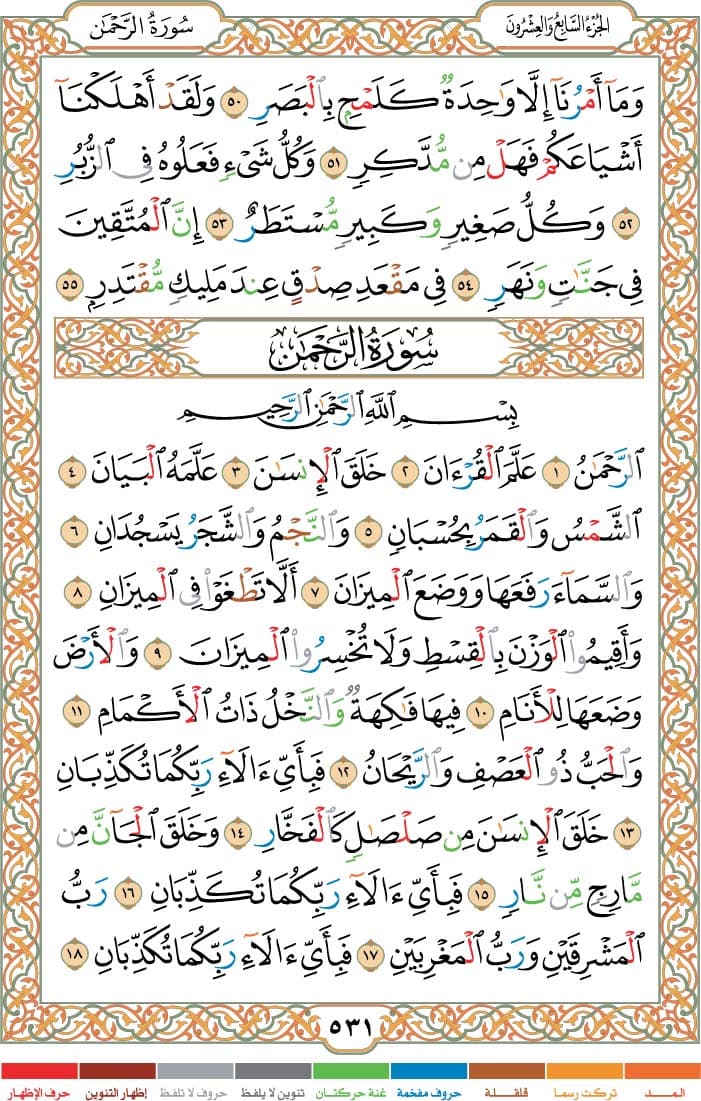 الجزء السابع والعشرون
سورة الرحمن
وَمَآ أَمْرُنَآ إِلَّا وَٰحِدَةٌ كَلَمْحِۭ بِٱلْبَصَرِ ٥٠ وَلَقَدْ أَهْلَكْنَآ
أَشْيَاعَكُمْ فَهَلْ مِن مُّدَّكِرٍ ٥١ وَكُلُّ شَىْءٍ فَعَلُوهُ فِى ٱلزُّبُرِ
٥٢ وَكُلُّ صَغِيرٍ وَكَبِيرٍ مُّسْتَطَرٌ ٥٣ إِنَّ ٱلْمُتَّقِينَ
فِى جَنَّٰتٍ وَنَهَرٍ ٥٤ فِى مَقْعَدِ صِدْقٍ عِندَ مَلِيكٍ مُّقْتَدِرٍۭ ٥٥
سُورَةُ الرَّحْمَٰن
بِسْمِ ٱللَّهِ ٱلرَّحْمَٰنِ ٱلرَّحِيمِ
ٱلرَّحْمَٰنُ ١ عَلَّمَ ٱلْقُرْءَانَ ٢ خَلَقَ ٱلْإِنسَٰنَ ٣ عَلَّمَهُ ٱلْبَيَانَ ٤
ٱلشَّمْسُ وَٱلْقَمَرُ بِحُسْبَانٍ ٥ وَٱلنَّجْمُ وَٱلشَّجَرُ يَسْجُدَانِ ٦
وَٱلسَّمَآءَ رَفَعَهَا وَوَضَعَ ٱلْمِيزَانَ ٧ أَلَّا تَطْغَوْا۟ فِى ٱلْمِيزَانِ ٨
وَأَقِيمُوا۟ ٱلْوَزْنَ بِٱلْقِسْطِ وَلَا تُخْسِرُوا۟ ٱلْمِيزَانَ ٩ وَٱلْأَرْضَ
وَضَعَهَا لِلْأَنَامِ ١٠ فِيهَا فَٰكِهَةٌ وَٱلنَّخْلُ ذَاتُ ٱلْأَكْمَامِ ١١
وَٱلْحَبُّ ذُو ٱلْعَصْفِ وَٱلرَّيْحَانُ ١٢ فَبِأَىِّ ءَالَآءِ رَبِّكُمَا تُكَذِّبَانِ
١٣ خَلَقَ ٱلْإِنسَٰنَ مِن صَلْصَٰلٍ كَٱلْفَخَّارِ ١٤ وَخَلَقَ ٱلْجَآنَّ مِن
مَّارِجٍ مِّن نَّارٍ ١٥ فَبِأَىِّ ءَالَآءِ رَبِّكُمَا تُكَذِّبَانِ ١٦ رَبُّ
ٱلْمَشْرِقَيْنِ وَرَبُّ ٱلْمَغْرِبَيْنِ ١٧ فَبِأَىِّ ءَالَآءِ رَبِّكُمَا تُكَذِّبَانِ ١٨
٥٣١
المـــد تركت رسما قلقـلة حروف مفخمة غنة حركتان تنوين لا يلفظ حروف لا تلفظ إظهار التنوين حرف الإظهار